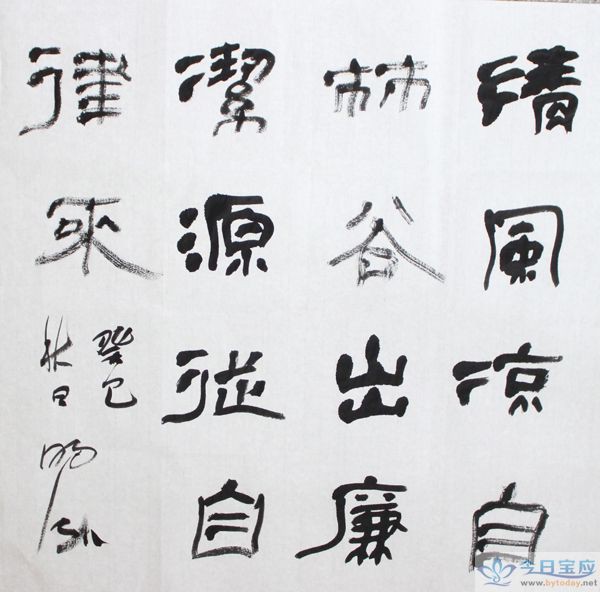 清風凉自
林谷出廉
潔源從自
律來
癸巳
秋日
今日宝应
www.bytoday.net